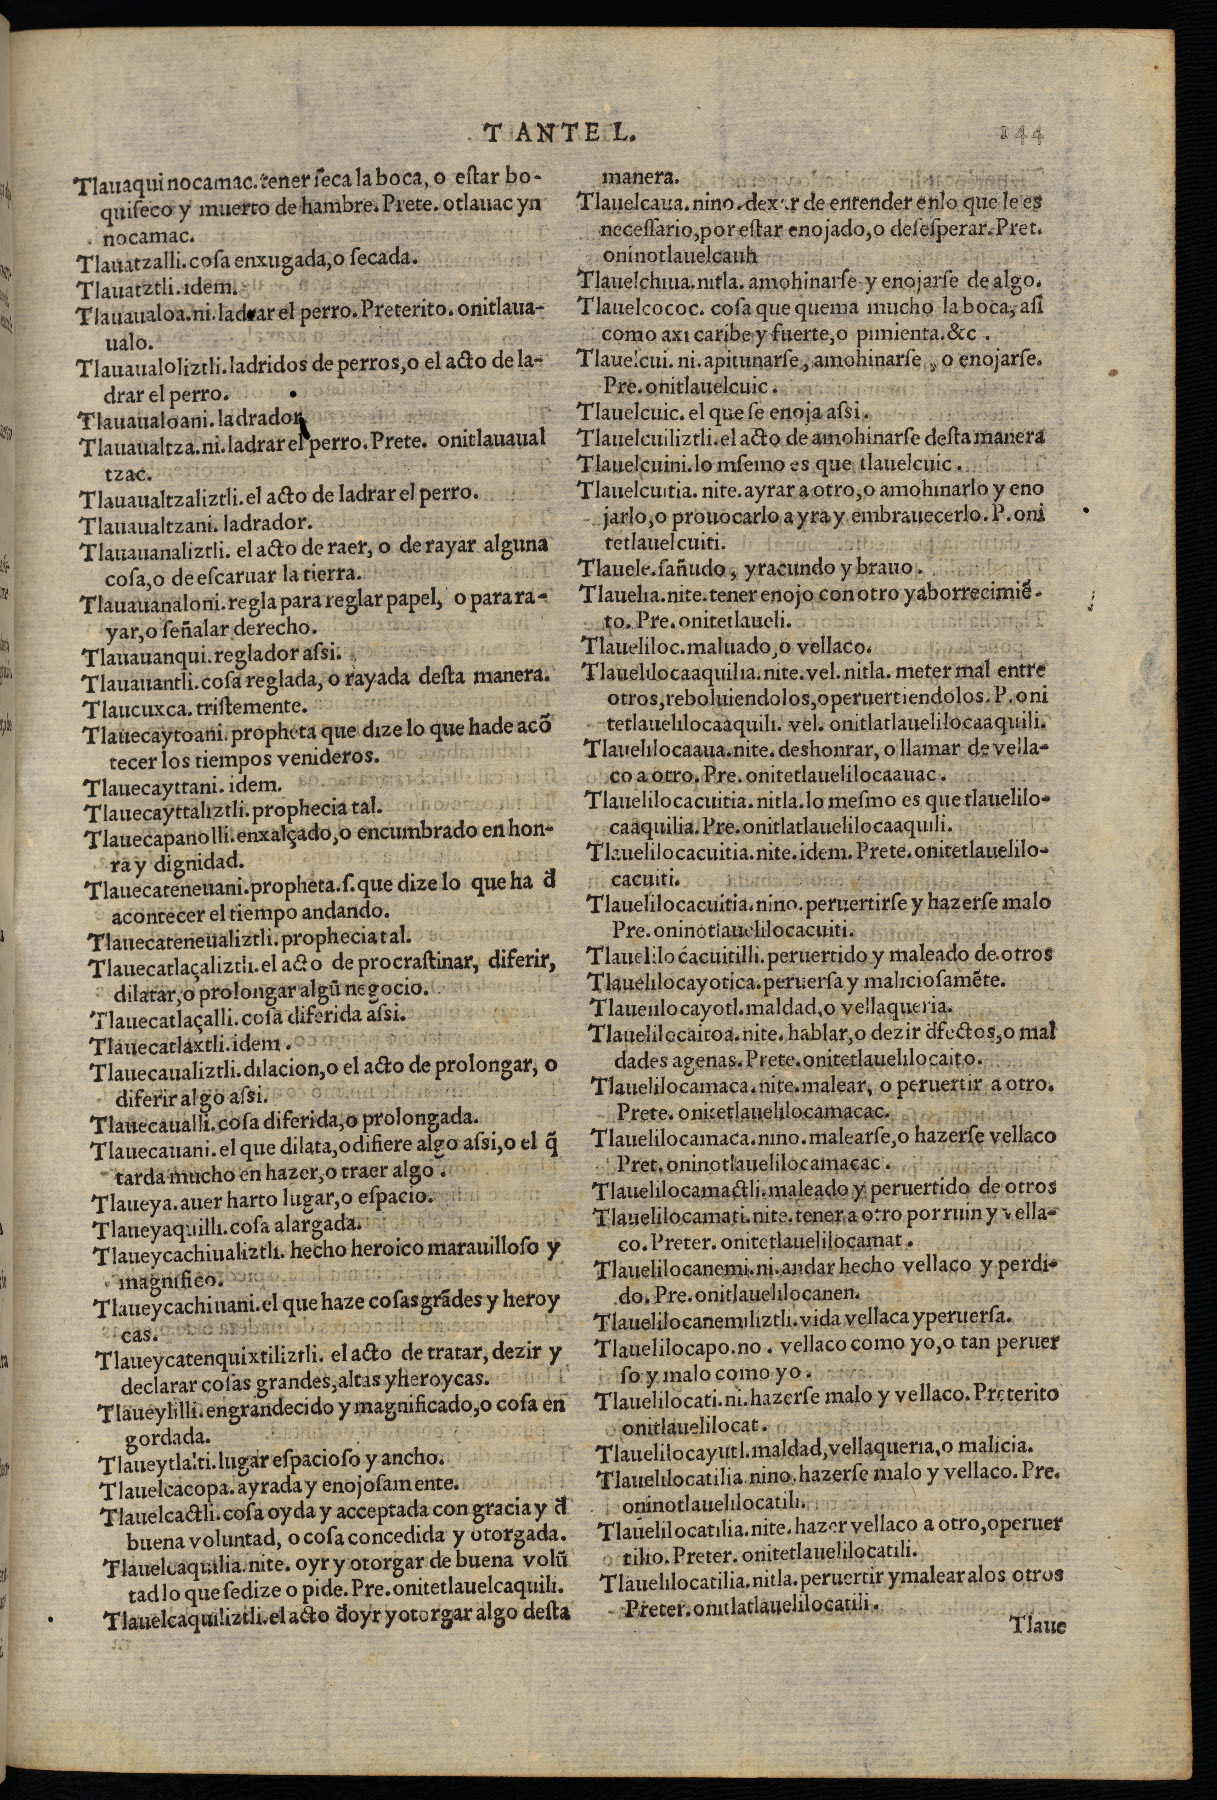 T ANTE L.
144
Tlauaqui nocamac. tener ſeca la boca, o eſtar bo-
quiſeco y muerto de hambre. Prete. otlauac yn
nocamac.
Tlauatzalli. coſa enxugada, o ſecada.
Tlauatztli. idem.
Tlauaualoa. ni. ladrar el perro. Preterito. onitlaua-
ualo.
Tlauaualoliztli. ladridos de perros, o el acto de la-
drar el perro.
Tlauaualoani. ladrador
Tlauaualtza. ni. ladrar el perro. Prete. onitlauaual
tzac.
Tlauaualtzaliztli. el acto de ladrar el perro.
Tlauaualtzani. ladrador.
Tlauauanaliztli. el acto de raer, o de rayar alguna
coſa, o de eſcaruar la tierra.
Tlauauanaloni. regla para reglar papel, o para ra-
yar, o ſeñalar derecho.
Tlauauanqui. reglador aſsi.
Tlauauantli. coſa reglada, o rayada deſta manera.
Tlaucuxca. triſtemente.
Tlauecaytoani. propheta que dize lo que hade acõ
tecer los tiempos venideros.
Tlauecayttani. idem.
Tlauecayttaliztli. prophecia tal.
Tlauecapanolli. enxalçado, o encumbrado en hon-
ra y dignidad.
Tlauecateneuani. propheta. ſ. que dize lo que ha đ
acontecer el tiempo andando.
Tlauecateneualiztli. prophecia tal.
Tlauecatlaçaliztli. el acto de procraſtinar, diferir,
dilatar, o prolongar algũ negocio.
Tlauecatlaçalli. coſa diferida aſsi.
Tlauecatlaxtli. idem.
Tlauecaualiztli. dilacion, o el acto de prolongar, o
diferir algo aſsi.
Tlauecaualli. coſa diferida, o prolongada.
Tlauecauani. el que dilata, o difiere algo aſsi, o el q̃
tarda mucho en hazer, o traer algo.
Tlaueya. auer harto lugar, o eſpacio.
Tlaueyaquilli. coſa alargada.
Tlaueycachiualiztli. hecho heroico marauilloſo y
magnifico.
Tlaueycachiuani. el que haze coſas grãdes y heroy
cas.
Tlaueycatenquixtiliztli. el acto de tratar, dezir y
declarar coſas grandes, altas y heroycas.
Tlaueylilli. engrandecido y magnificado, o coſa en
gordada.
Tlaueytlalti. lugar eſpacioſo y ancho.
Tlauelcacopa. ayrada y enojoſamente.
Tlauelcactli. coſa oyda y acceptada con gracia y đ
buena voluntad, o coſa concedida y otorgada.
Tlauelcaquilia. nite. oyr y otorgar de buena volũ
tad lo que ſe dize o pide. Pre. onitetlauelcaquili.
Tlauelcaquiliztli. el acto đ oyr y otorgar algo deſta
manera.
Tlauelcaua. nino. dexar de entender enlo que le es
neceſſario, por eſtar enojado, o deſeſperar. Pret.
oninotlauelcauh
Tlauelchiua. nitla. amohinarſe y enojarſe de algo.
Tlauelcococ. coſa que quema mucho la boca, aſi
como axi caribe y fuerte, o pimienta. &c.
Tlauelcui. ni. apitunarſe, amohinarſe, o enojarſe.
Pre. onitlauelcuic.
Tlauelcuic. el que ſe enoja aſsi.
Tlauelcuiliztli. el acto de amohinarſe deſta manera
Tlauelcuini. lo mſemo es que tlauelcuic.
Tlauelcuitia. nite. ayrar a otro, o amohinarlo y eno
jarlo, o prouocarlo a yra y embrauecerlo. P. oni
tetlauelcuiti.
Tlauele. ſañudo, yracundo y brauo.
Tlauelia. nite. tener enojo con otro y aborrecimiẽ-
to. Pre. onitetlaueli.
Tlaueliloc. maluado, o vellaco.
Tlauelilocaaquilia. nite. vel. nitla. meter mal entre
otros, reboluiendolos, o peruertiendolos. P. oni
tetlauelilocaaquili. vel. onitlatlauelilocaaquili.
Tlauelilocaaua. nite. deshonrar, o llamar de vella-
co a otro. Pre. onitetlauelilocaauac.
Tlauelilocacuitia. nitla. lo meſmo es que tlauelilo-
caaquilia. Pre. onitlatlauelilocaaquili.
Tlauelilocacuitia. nite. idem. Prete. onitetlauelilo-
cacuiti.
Tlauelilocacuitia. nino. peruertirſe y hazerſe malo
Pre. oninotlauelilocacuiti.
Tlauelilocacuitilli. peruertido y maleado de otros
Tlauelilocayotica. peruerſa y malicioſamẽte.
Tlauelilocayotl. maldad, o vellaqueria.
Tlauelilocaitoa. nite. hablar, o dezir đfectos, o mal
dades agenas. Prete. onitetlauelilocaito.
Tlauelilocamaca. nite. malear, o peruertir a otro.
Prete. onitetlauelilocamacac.
Tlauelilocamaca. nino. malearſe, o hazerſe vellaco
Pret. oninotlauelilocamacac.
Tlauelilocamactli. maleado y peruertido de otros
Tlauelilocamati. nite. tener a otro por ruin y vella-
co. Preter. onitetlauelilocamat.
Tlauelilocanemi. ni. andar hecho vellaco y perdi-
do. Pre. onitlauelilocanen.
Tlauelilocanemiliztli. vida vellaca y peruerſa.
Tlauelilocapo. no. vellaco como yo, o tan peruer
ſo y malo como yo.
Tlauelilocati. ni. hazerſe malo y vellaco. Preterito
onitlauelilocat.
Tlauelilocayutl. maldad, vellaqueria, o malicia.
Tlauelilocatilia nino. hazerſe malo y vellaco. Pre.
oninotlauelilocatili.
Tlauelilocatilia. nite. hazer vellaco a otro, o peruer
tilio. Preter. onitetlauelilocatili.
Tlauelilocatilia. nitla. peruertir y malear alos otros
Preter. onitlatlauelilocatili.
Tlaue